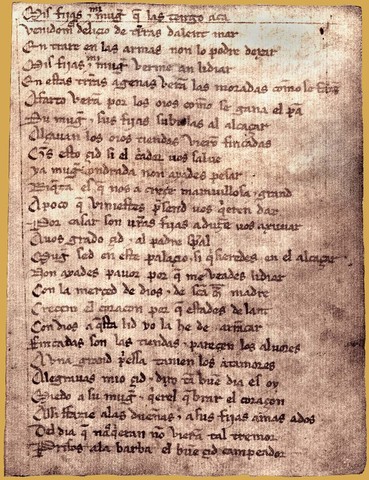 Mis fijas ⁊ mi mugr̃ q̃ las tengo aca
Venidom es delicio de tr̃ras dalent mar
Entrare en las armas non lo podre dexar
Mis fijas ⁊ mi mugr̃ verme an lidiar
En estas tr̃ras agenas verã las moradas commo se
Afarto verã por los oios commo se gana el pã
Su mugr̃ ⁊ sus fijas subiolas al alcaçar
Alçauan los oios tiendas vierõ fincadas
Q̃s esto çid si el c̃ador uos salue
ya mugr̃ ondrada non ayades pesar
Riq̃za es q̃ nos açreçe marauillosa ⁊ grand
Apoco q̃ viniestes p̃send uos q̃eren dar
Por casar son ur̃as fijas aduzẽ uos axuuar
Auos grado çid ⁊ al padre sp̃al
Mugr̃ sed en este palaçio ⁊ si q̃sieredes en el alcaçar
Non ayades pauor por q̃ me veades lidiar
Con la merçed de dios ⁊ de sc̃a mr̃ madre
Creçem el coraçon por q̃ estades delant
Con dios aq̃sta lid yo la he de arrãcar
Fincadas son las tiendas ⁊ pareçen los aluores
Auna grand p̃essa tanien los atamores
Alegrauas myo çid ⁊ dixo tã buẽ dia es oy
Miedo a su mugr̃ ⁊ q̃erel q̃brar el coraçon
Assi ffazie alas dueñas ⁊ a sus fijas amas ados
Del dia q̃ nasq̃eran nõ vierã tal tremor
Prisos ala barba el buẽ çid campeador